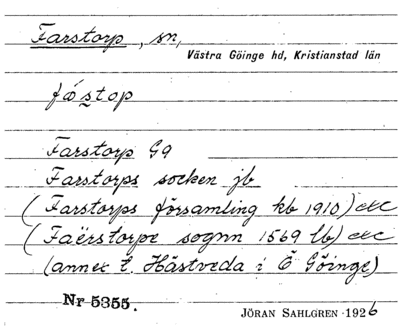 Farstorp, sn,
Västra Göinge hd, Kristianstad län
fástop
Farstorp G9
Farstorps socken jb
(Farstorps församling kb 1910) etc
(Faërstorpe sognn 1569 lb) etc
(annex t. Hästveda i Ö Göinge)
Nr 5355.
JÖRAN SAHLGREN 1926